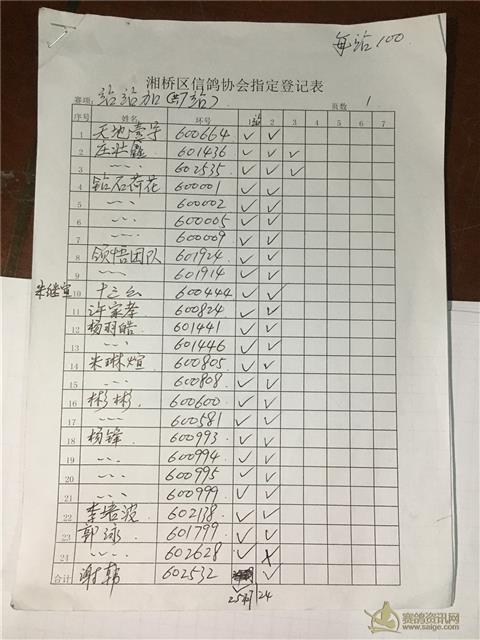 每站100
湘桥区信鸽协会指定登记表
赛项：站站加(共7站) 页数 1
序号 姓名 环号 1站 2 3 4 5 6 7
1 天地壹号 600664 ✓ ✓
2 庄壮鑫 601436 ✓ ✓ ✓
3 〃 602535 ✓ ✓ ✓
4 钻石荷花 600001 ✓ ✓
5 〃 600002 ✓ ✓
6 〃 600005 ✓ ✓
7 〃 600009 ✓ ✓
8 领悟团队 601924 ✓ ✓
9 〃 601914 ✓ ✓
朱继宣 10 十三么 600444 ✓ ✓
11 许家孝 600824 ✓ ✓
12 杨羽皓 601441 ✓ ✓
13 〃 601446 ✓ ✓
14 朱琳煊 600805 ✓ ✓
15 〃 600808 ✓ ✓
16 彬彬 600600 ✓ ✓
17 〃 600581 ✓ ✓
18 杨锋 600993 ✓ ✓
19 〃 600994 ✓ ✓
20 〃 600995 ✓ ✓
21 〃 600999 ✓ ✓
22 李培波 602138 ✓ ✓
23 郭泳 601799 ✓ ✓
24 〃 602628 ✓ ✗
合计 谢韩 602532 ✓ ✓
25羽 24
赛鸽资讯网
www.saige.com